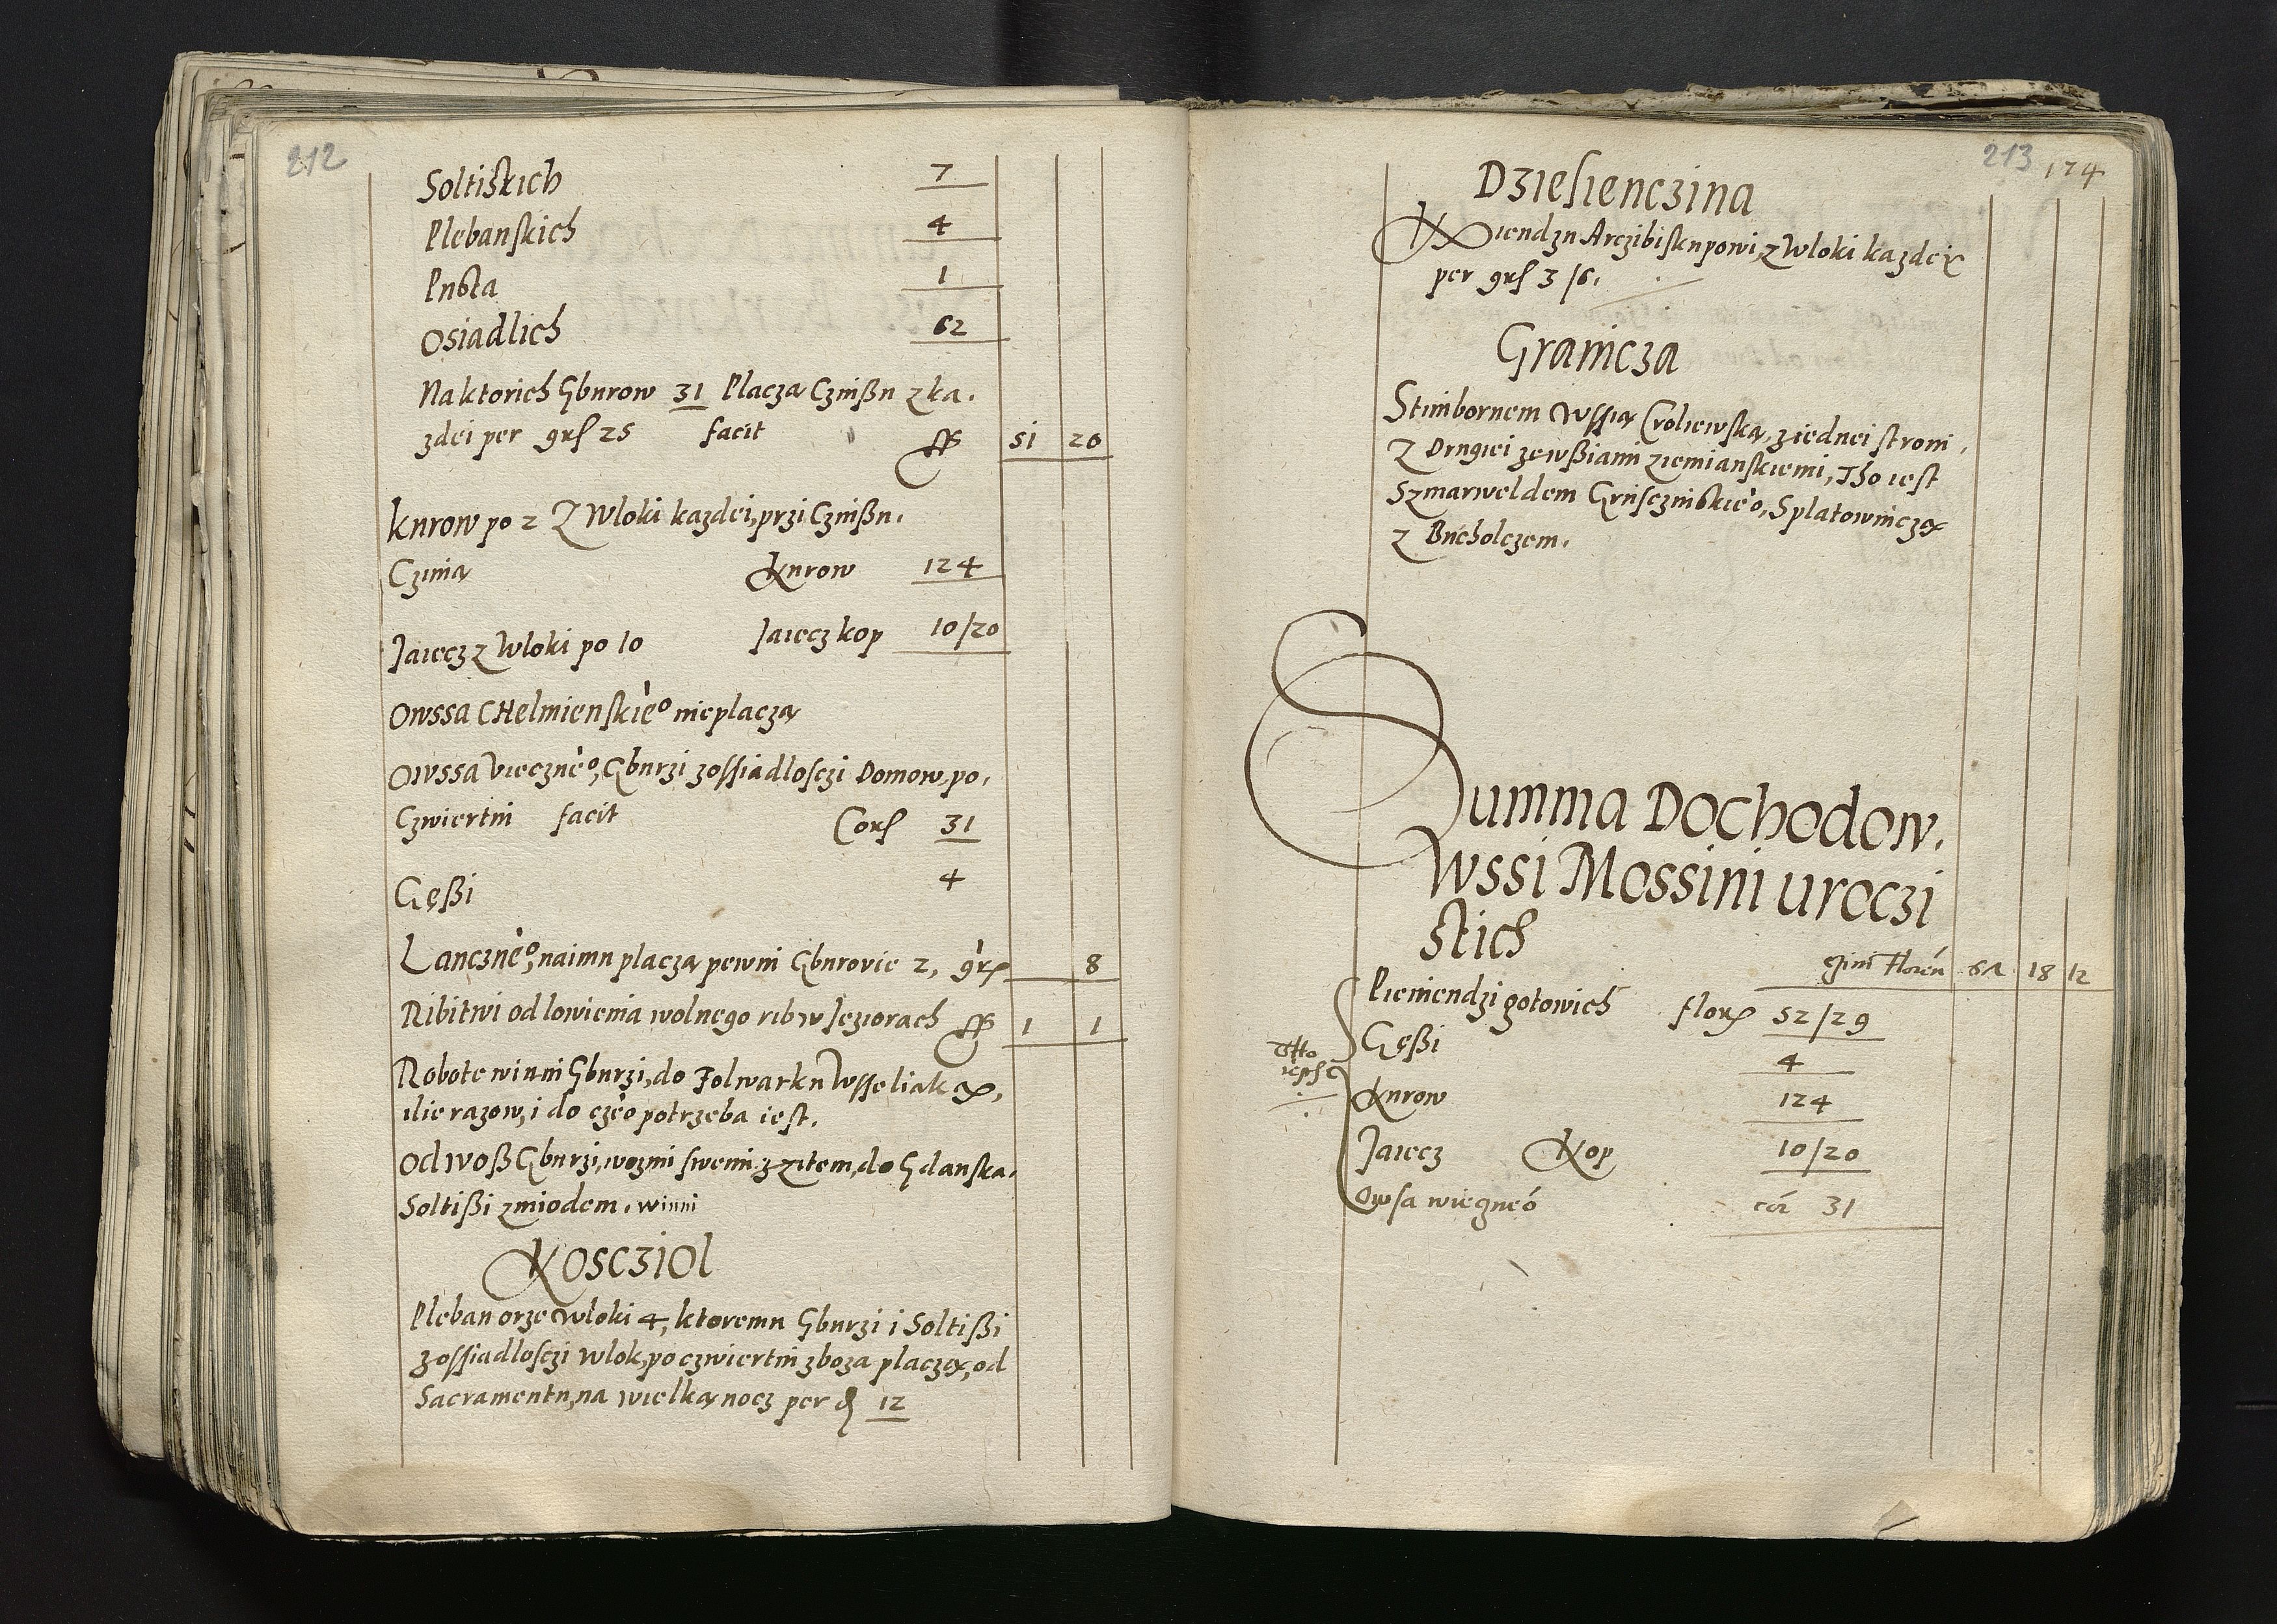 212
Soltiskich 7
Plebanskich 4
Pusta 1
Osiadlich 62
Na ktorich Gburow 31 Placzą Czinßu z ka.
zdei per grs 25 facit ff 51 20
Kurow po 2 Z Wloki kazdei, przi Czinßu.
Czinią Kurow 124
Jaiecz z Wloki po 10 Jaiecz kop 10/20
Owssa CHelmienskieo nie placzą
Owssa vieczneo, Gburzi z ossiadlosczi Domow, po,
Czwiertni facit Cors 31
Gęßi 4
Lanczneo, naimu placzą pewni Gburovie 2, gr 8
Ribitwi od lowienia wolnego rib w Jeziorach ff 1 1
Robote winni Gburzi, do Folwarku Wsseliaką,
ilie razow, i do czeo potrzeba iest.
Odwoß Gburzi, wozmi swemi z zitem, do Gdanska.
Soltißi z miodem. winni
Koscziol
Pleban orze Wloki 4, ktoremu Gburzi i Soltißi
z ossiadlosczi wlok, po czwiertni zboza placzą, od
Sacramentu, na wielką nocz per d 12
213 174
Dziesienczina
Xiendzu Arczibiskupowi, z Wloki kazdei
per grs 3 /6.
Granicza
S Timbornem Wssią Croliewską, z iednei stroni,
Z Drugiei ze wßiami ziemianskiemi, Tho iest
Szmarweldem Grusczinskieo, S platowniczą
z Bucholczem.
Summa Dochodow.
Wssi Mossini uroczi
stich
floren 61 18 12
Pieniendzi gotowich flor 52/29
Gęßi 4
Kurow 124
Jaiecz Kop 10/20
Owsa wiegneó cór 31